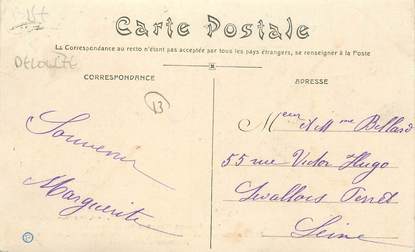 Carte Postale
La Correspondance au recto n'étant pas acceptée par tous les pays étrangers, se renseigner à la Poste
CORRESPONDANCE
13
Souvenir
Marguerite
ADRESSE
Meur et Mme Billard
55 rue Victor Hugo
Levallois Perret
Seine